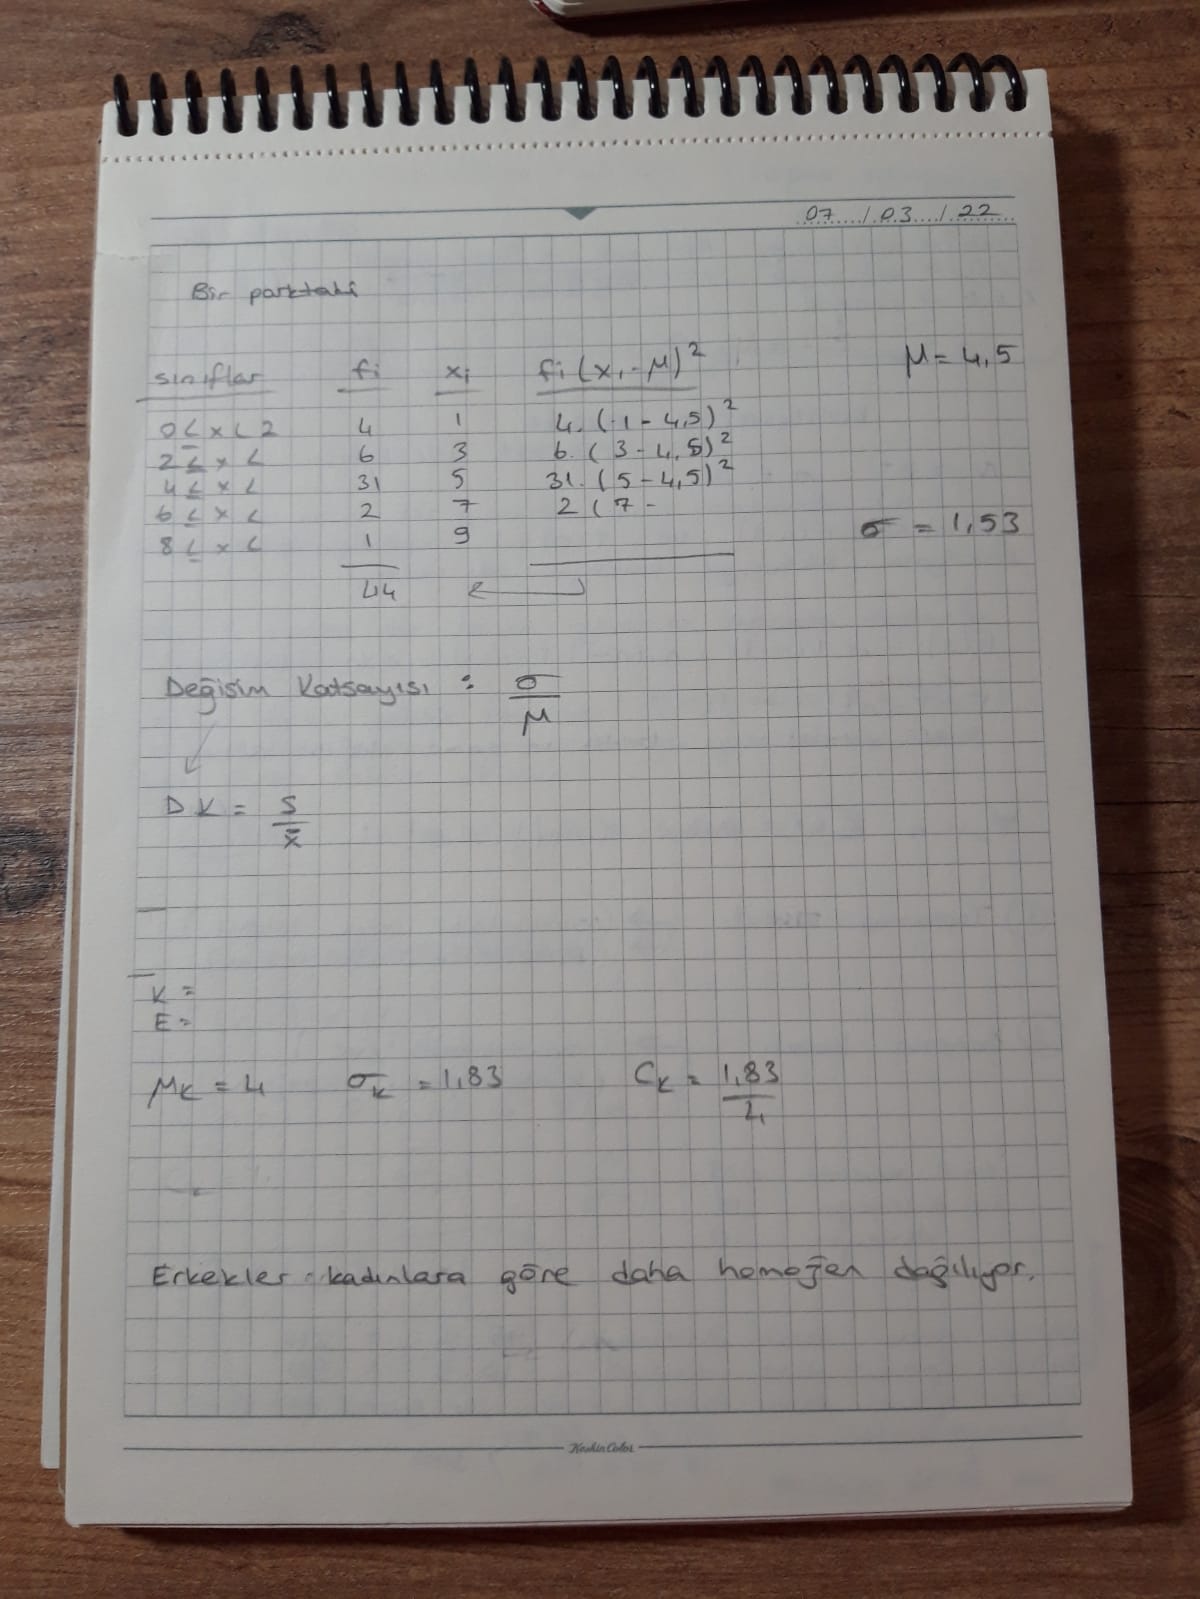 07 / 03 / 22
Bir parktaki
sınıflar fi xi fi (xi - μ)² μ = 4,5
0 ≤ x < 2 4 1 4. (1 - 4,5)²
2 ≤ x < 6 3 6. (3 - 4,5)²
4 ≤ x < 31 5 31. (5 - 4,5)²
6 ≤ x < 2 7 2 (7 -
8 ≤ x < 1 9 σ = 1,53
44
Değişim Katsayısı : σ/μ
DK = s/x̄
K =
E =
μK = 4 σK = 1,83 CK = 1,83/4
Erkekler kadınlara göre daha homojen dağılıyor.
Keskin Color